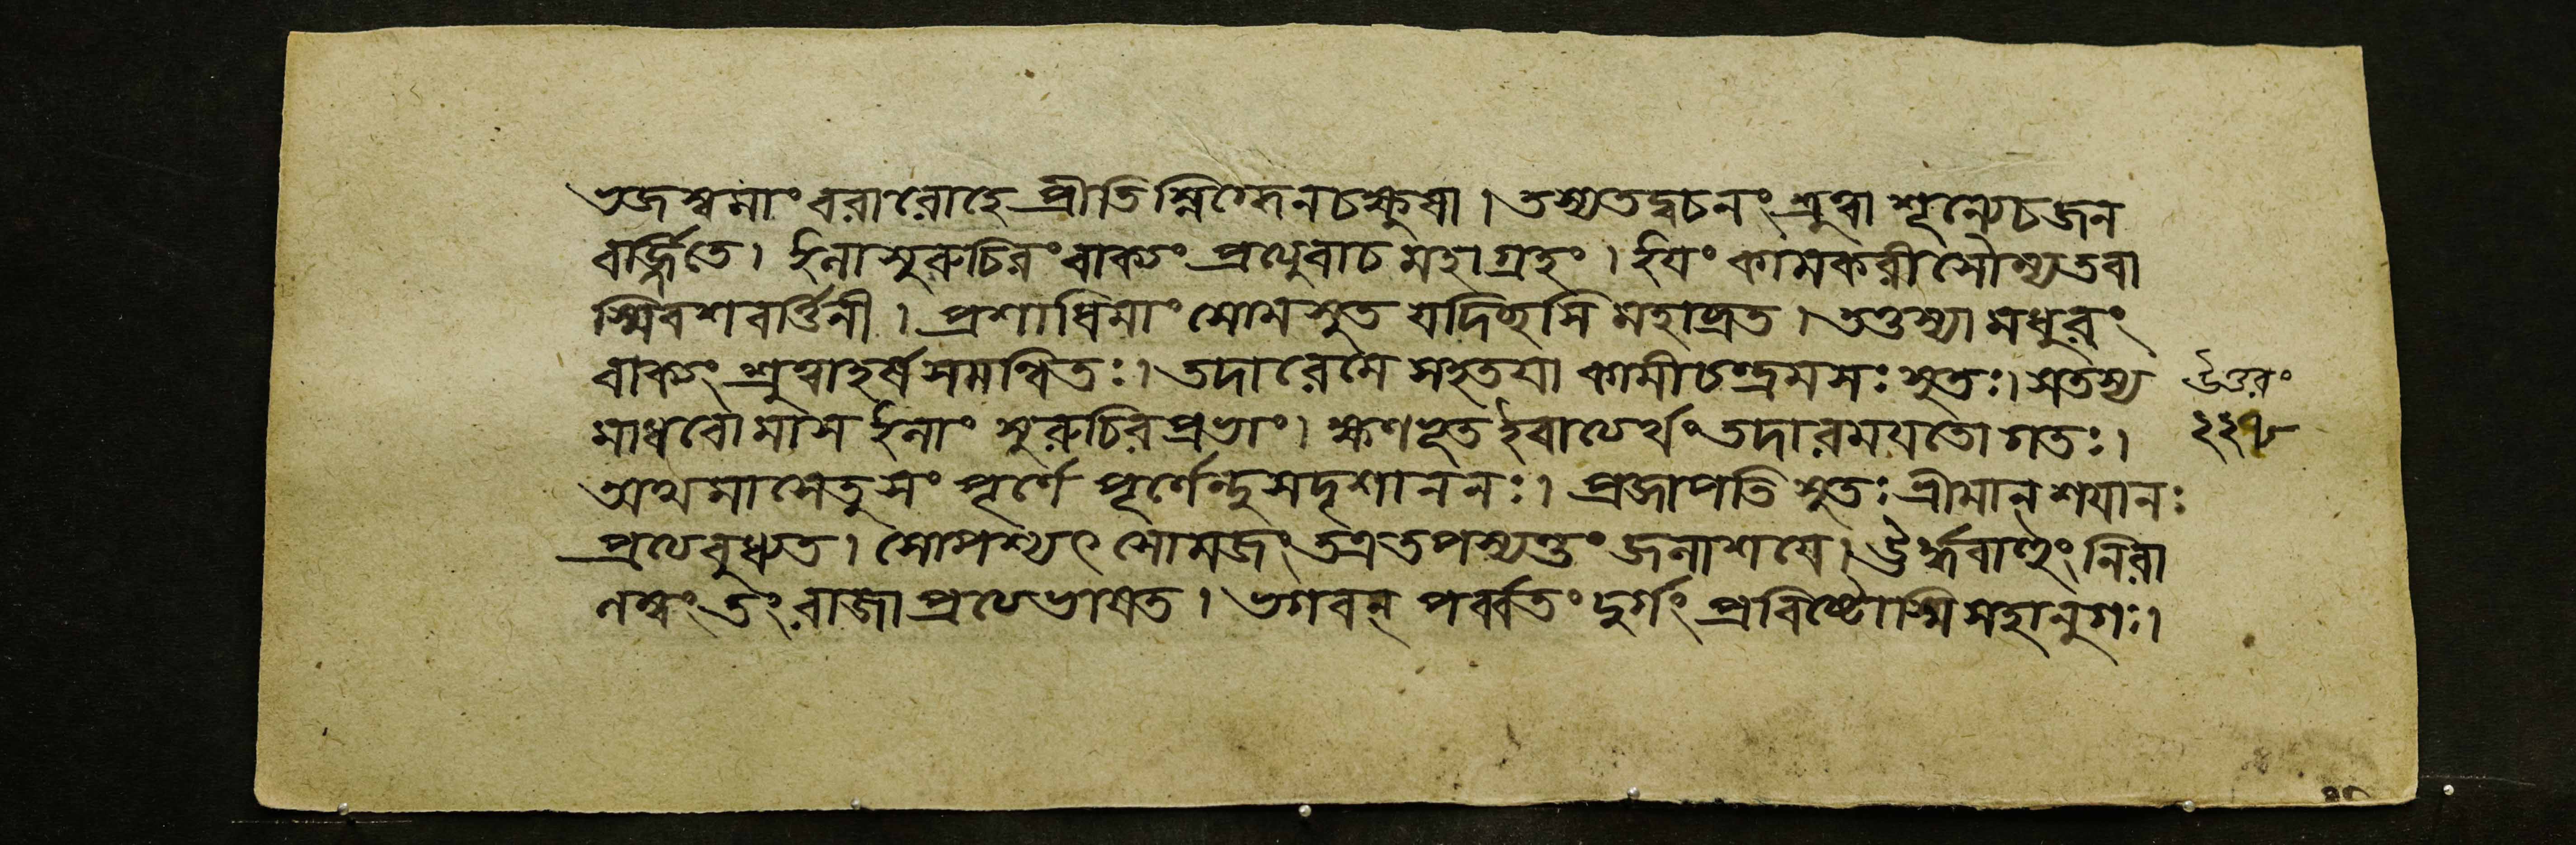 ভজস্বমাং বরারোহে প্রীতিস্নিগ্ধেনচক্ষুষা। তস্যতদ্বচনং শ্রুত্বা শূন্যেচজন
বর্জ্জিতে। ইলাসুরুচিরং বাক্যং প্রত্যুবাচ মহাগ্রহং। ইয়ং কামকরী সৌম্যতবা
স্মিবশবর্ত্তিনী। প্রশাধিমাং সোমসুত যদিচ্ছসি মহাপ্রভ। তত্তস্যা মধুরং
বাক্যং শ্রুত্বাহর্ষসমন্বিতঃ। তদারেমে সহতয়া কামীচন্দ্রমসঃ সুতঃ। সতস্য
মাধবোমাস ইলাং সুরুচিরপ্রভাং। ক্ষণভূত ইবাত্যের্থং তদারময়তো গতঃ।
অথমাসেতুসং পূর্ণে পূর্ণেন্দুসদৃশাননঃ। প্রজাপতি সুতঃ শ্রীমান্ শয়ানঃ
প্রত্যেবুধ্যত। সোপশ্যৎ সোমজং তত্রতপস্যন্তং জলাশয়ে। ঊর্দ্ধবাহুং নিরা
লম্বং তং রাজা প্রত্যেভাষত। ভগবন্ পর্ব্বতং দুর্গং প্রবিষ্টোস্মি সহানুগঃ।
উত্তরং
২২৭